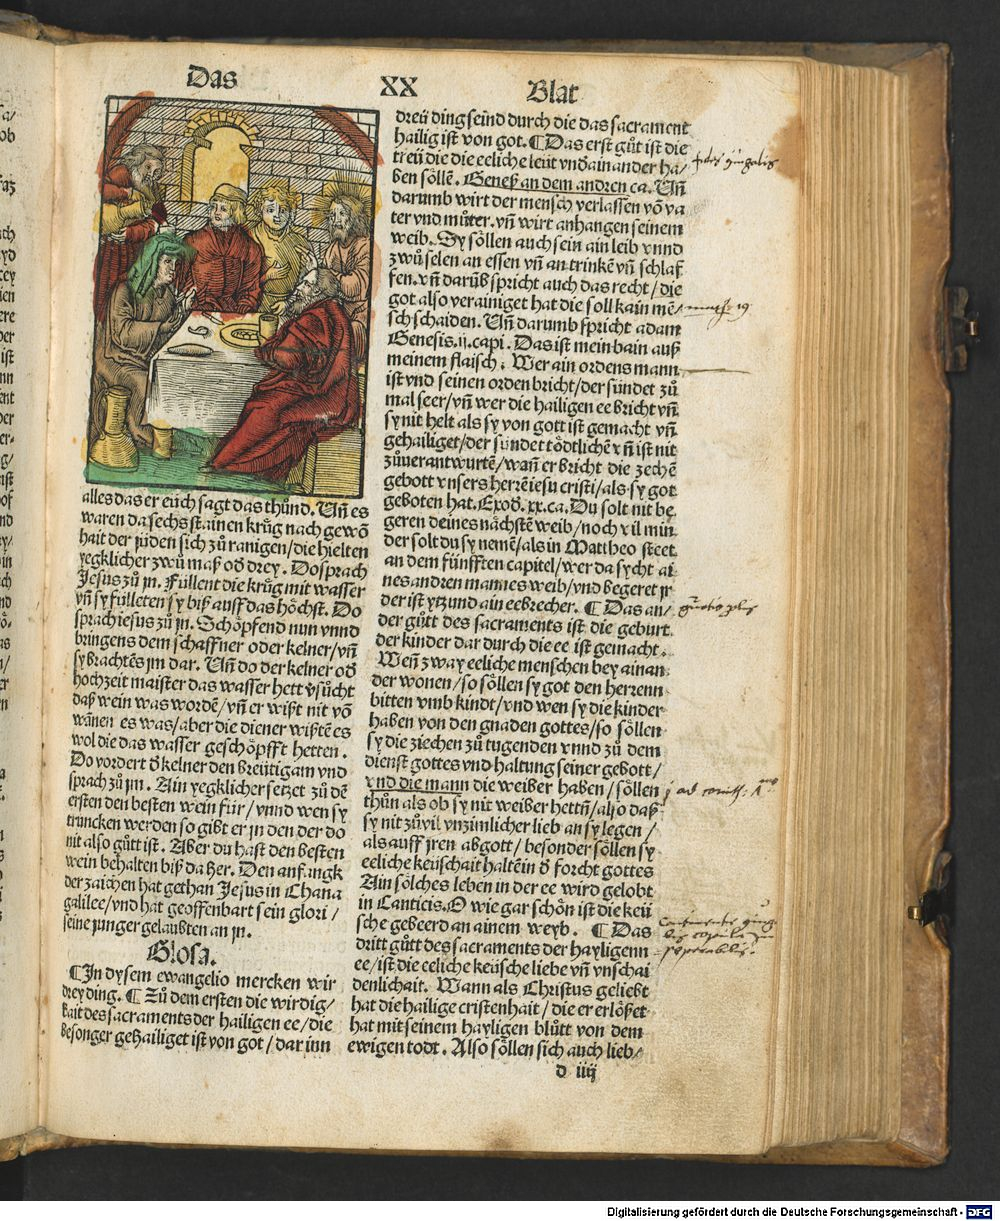 Das XX Blat
alles das er eüch sagt das thůnd. Uñ es
waren da sechs stainen krůg nach gewõ
hait der juden sich zů ranigen / die hielten
yegklicher zwů maß od̕ drey. Do sprach
Jesus zů jn. Füllent die krůg mit wasser
vñ sy fülleten sy biß auff das höchst. Do
sprach iesus zů jn. Schöpfend nun vnnd
bringens dem schaffner oder kelner / vñ
sy brachtẽs jm dar. Uñ do der kelner od̕
hochzeit maister das wasser hett v̕sůcht
daß wein was wordẽ / vñ er wißt nit võ
wãnen es was / aber die diener wißtẽ es
wol die das wasser geschöpfft hetten.
Do vordert d̕ kelner den breütigam vnd
sprach zů jm. Ain yegklicher setzet zů dẽ
ersten den besten wein für / vnnd wen sy
truncken werden so gibt er jn den der do
nit also gůtt ist. Aber du hast den besten
wein behalten biß da her. Den anfangk
der zaichen hat gethan Jesus in Chana
galilee / vnd hat geoffenbart sein glori /
seine junger gelaubten an jn.
Glosa.
¶ In dysem ewangelio mercken wir
drey ding. ¶ Zů dem ersten die wirdig/
kait des sacraments der hailigen ee / die
besonger gehailiget ist von got / dar inn
dreü ding seind durch die das sacrament
hailig ist von got. ¶ Das erst gůt ist die
treü die die eeliche leüt vnd̕ ain ander ha/
ben söllẽ. Geneß an dem andren ca. Uñ
darumb wirt der mensch verlassen võ va
ter vnd můter. vñ wirt anhangen seinem
weib. Sy söllen auch sein ain leib vnnd
zwů selen an essen vñ an trinkẽ vñ schlaf
fen. vñ darüb spricht auch das recht / die
got also verainiget hat die soll kain mẽ
sch schaiden. Uñ darumb spricht adam
Genesis. ij. capi. Das ist mein bain auß
meinem flaisch. Wer ain ordens mann
ist vnd seinen orden bricht / der sündet zů
mal seer / vñ wer die hailigen ee bricht vñ
sy nit helt als sy von gott ist gemacht vñ
gehailiget / der sündet tödtlichẽ vñ ist nit
zůuerantwurtẽ / wañ er bricht die zechẽ
gebott vnsers herrẽ iesu cristi / als sy got
geboten hat. Exod̕. xx. ca. Du solt nit be
geren deines nächstẽ weib / noch vil min
der solt du sy nemẽ / als in Mattheo steet
an dem fünfften capitel / wer da sycht ai
nes andren mannes weib / vnd begeret jr
der ist ytzund ain eebrecher. ¶ Das an/
der gůtt des sacraments ist die geburt
der kinder dar durch die ee ist gemacht.
Weñ zway eeliche menschen bey ainan
der wonen / so söllen sy got den herrenn
bitten vmb kindt / vnd wen sy die kinder
haben von den gnaden gottes / so söllen
sy die ziechen zů tugenden vnnd zů dem
dienst gottes vnd haltung seiner gebott /
vnd die mann die weiber haben / söllen
thůn als ob sy nit weiber hettñ / also daß
sy nit zůvil vnzimlicher lieb an sy legen /
als auff jren abgott / besonder söllen sy
eeliche keüschait haltẽ in d̕ forcht gottes
Ain sölches leben in der ee wird gelobt
in Canticis. O wie gar schön ist die keü
sche gebeerd an ainem weyb. ¶ Das
dritt gůtt des sacraments der hayligenn
ee / ist die eeliche keüsche liebe vñ vnschai
denlichait. Wann als Christus geliebt
hat die hailige cristenhait / die er erlößet
hat mit seinem hayligen blůtt von dem
ewigen todt. Also söllen sich auch lieb/
d iiij
math. 19
j ad corinth: 7
Digitalisierung gefördert durch die Deutsche Forschungsgemeinschaft - DFG